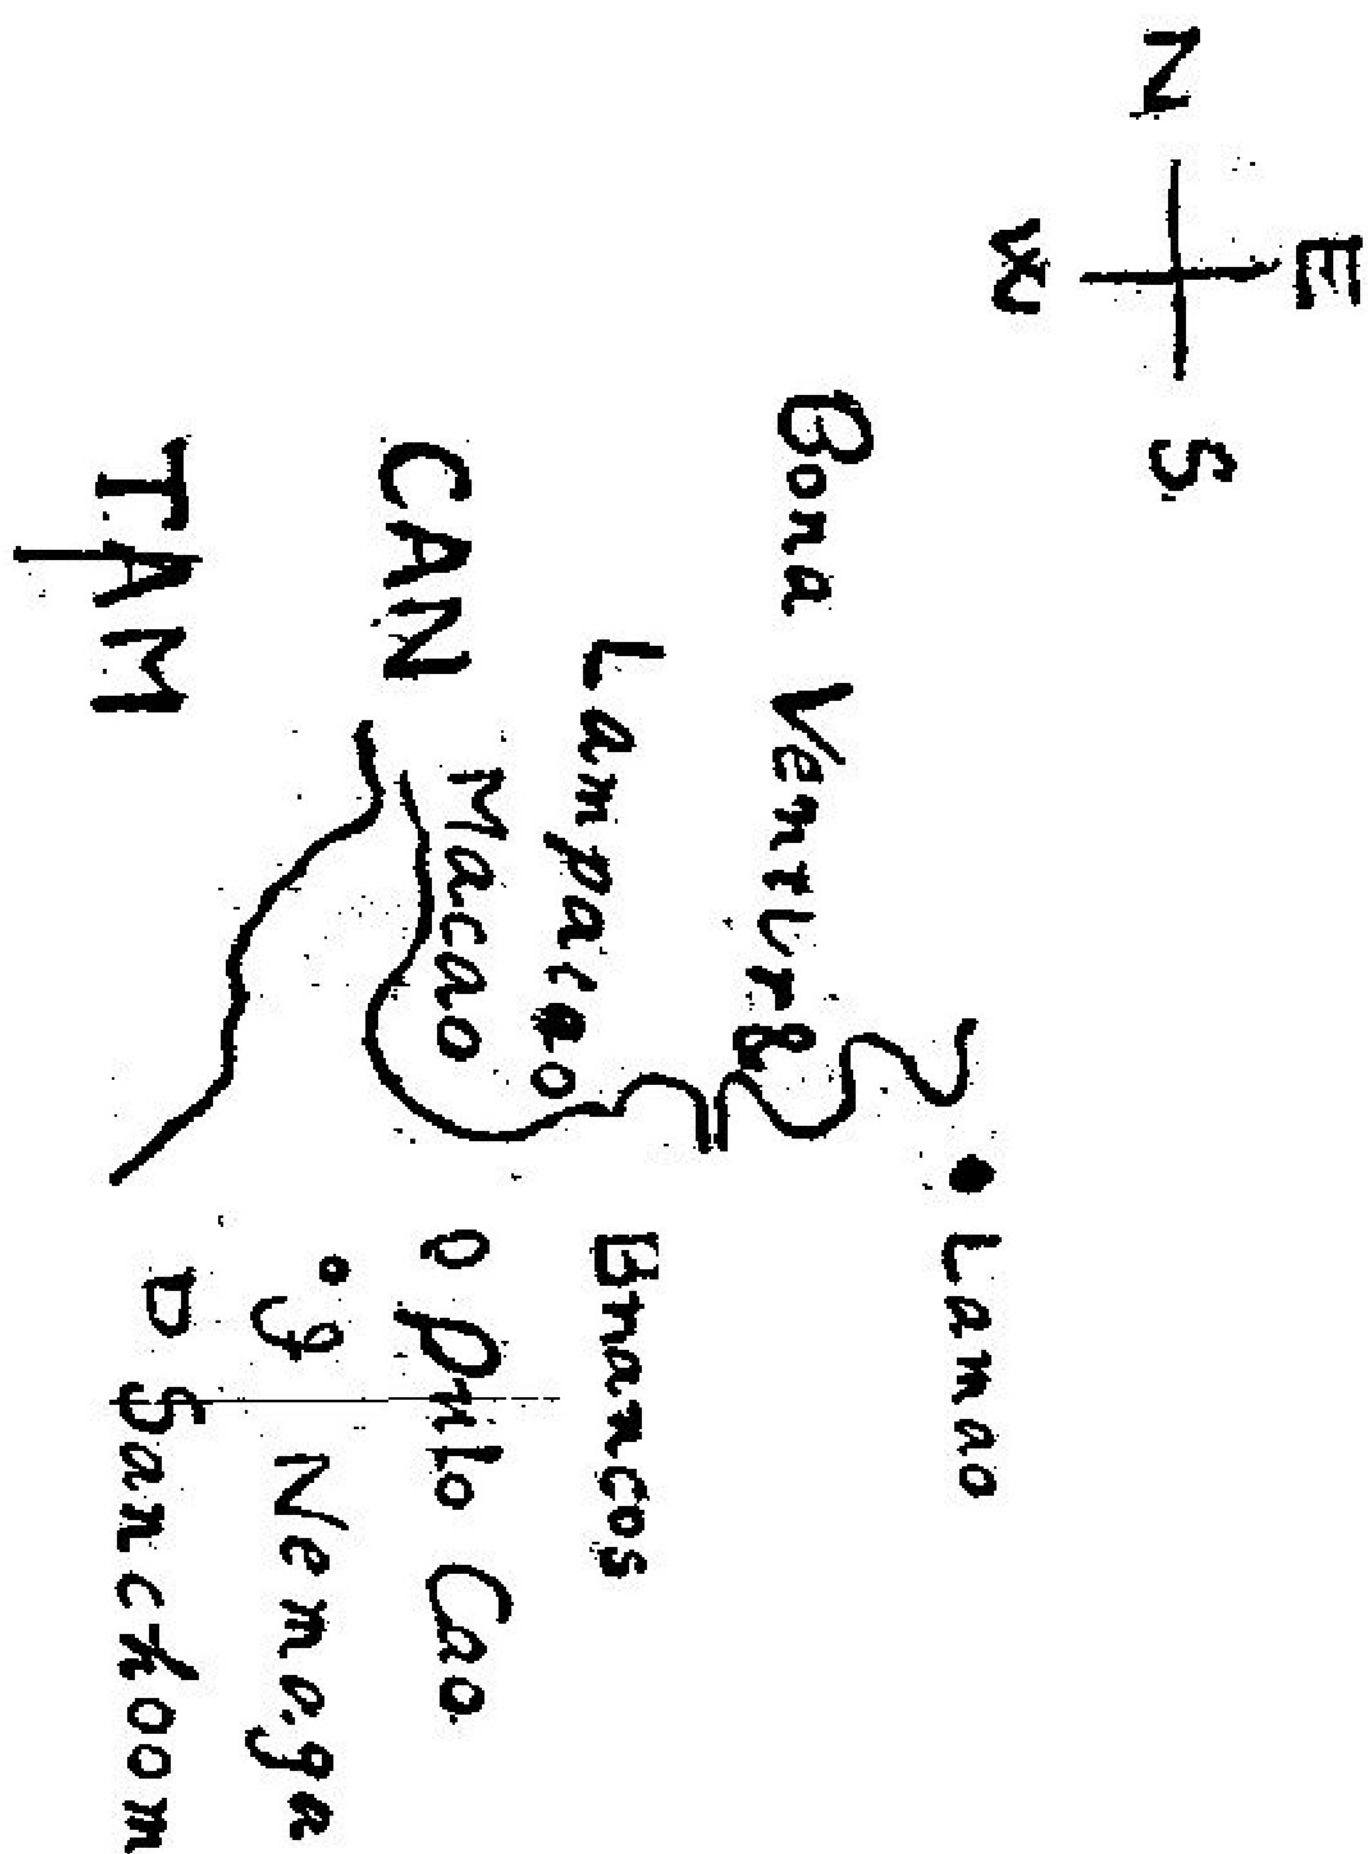 N
W E
S
Bona Ventura
Lampacao
CAN
Macao
TAM
Lamao
Brancos
Pulo Cao.
g Nemega
Sanchoom